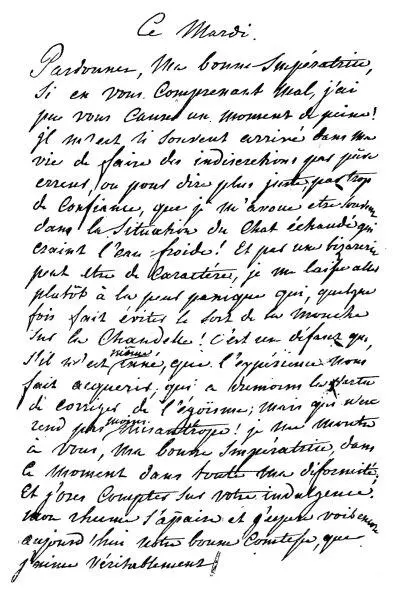 Ce Mardi.
Pardonnez, Ma bonne Impératrice,
Si en vous Comprenant Mal, j'ai
pu vous Causer un moment de peine!
Il m'est si souvent arrivé dans ma
vie de faire des indiscrétions par pure
erreur, ou pour dire plus juste, par trop
de Confiance, que je m'avoue etre souvent
dans la Situation du Chat échaudé qui
craint l'eau froide! Et par une bizarerie
peut etre de Caractère, je me laisse aller
plutôt à la peur panique qui, quelque
fois fait éviter le sort de la mouche
sur la Chandelle! C'est un défaut qui,
s'il n'est même inné, que l'expérience nous
fait acquerir, qui a dumoins la vertu
de corriger de l'égoïsme; mais qui n'en
rend pas moins misantrope! je me montre
à vous, Ma bonne Impératrice, dans
ce moment dans toute ma diformité;
Et j'oses Compter sur votre indulgence.
mon rhume s'apaise et j'espere voir encore
aujourd'hui notre bonne Comtesse, que
j'aime véritablement